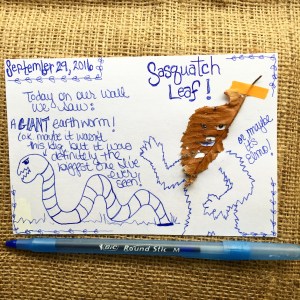 September 29, 2016
Sasquatch
Leaf!
Today on our walk
we saw:
A GIANT earthworm!
(OK maybe it wasn't
this big but it was
definitely the
biggest one we've
ever seen!)
maybe
it's
Bic Round Stic M